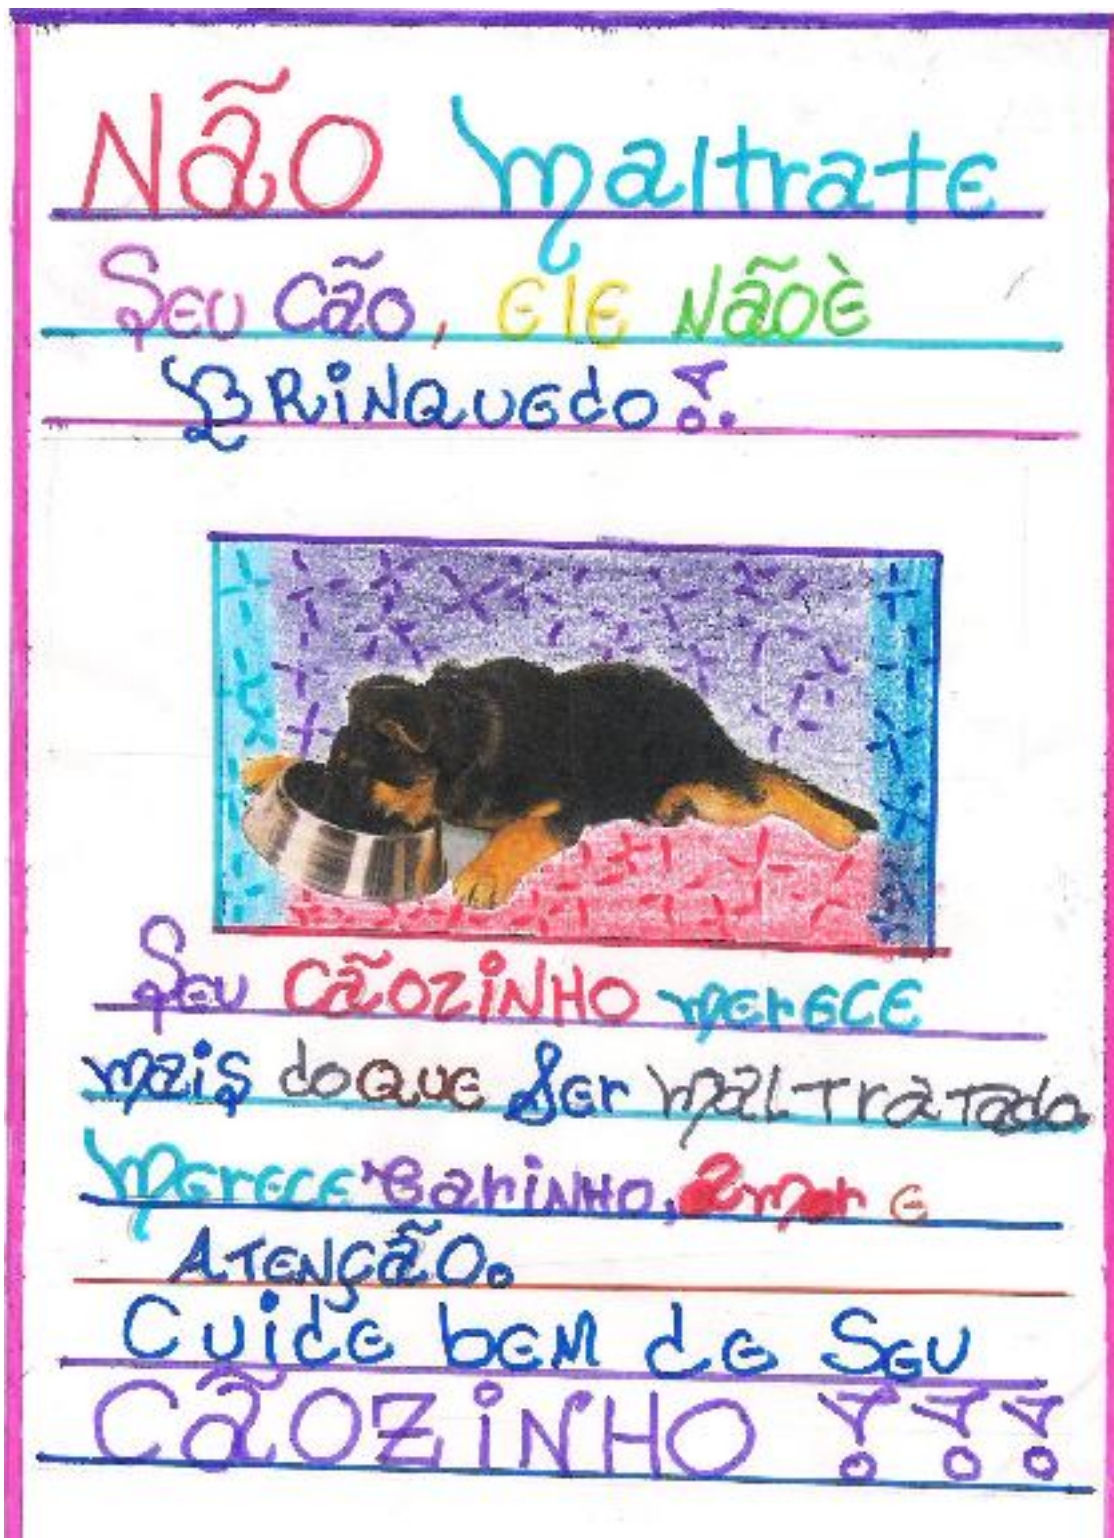 Não maltrate
Seu cão, ele nãoè
Brinquedo!.
Seu cãozinho merece
mais do que ser maltratado.
merece carinho, amor e
Atenção.
Cuide bem de seu
Cãozinho !!!